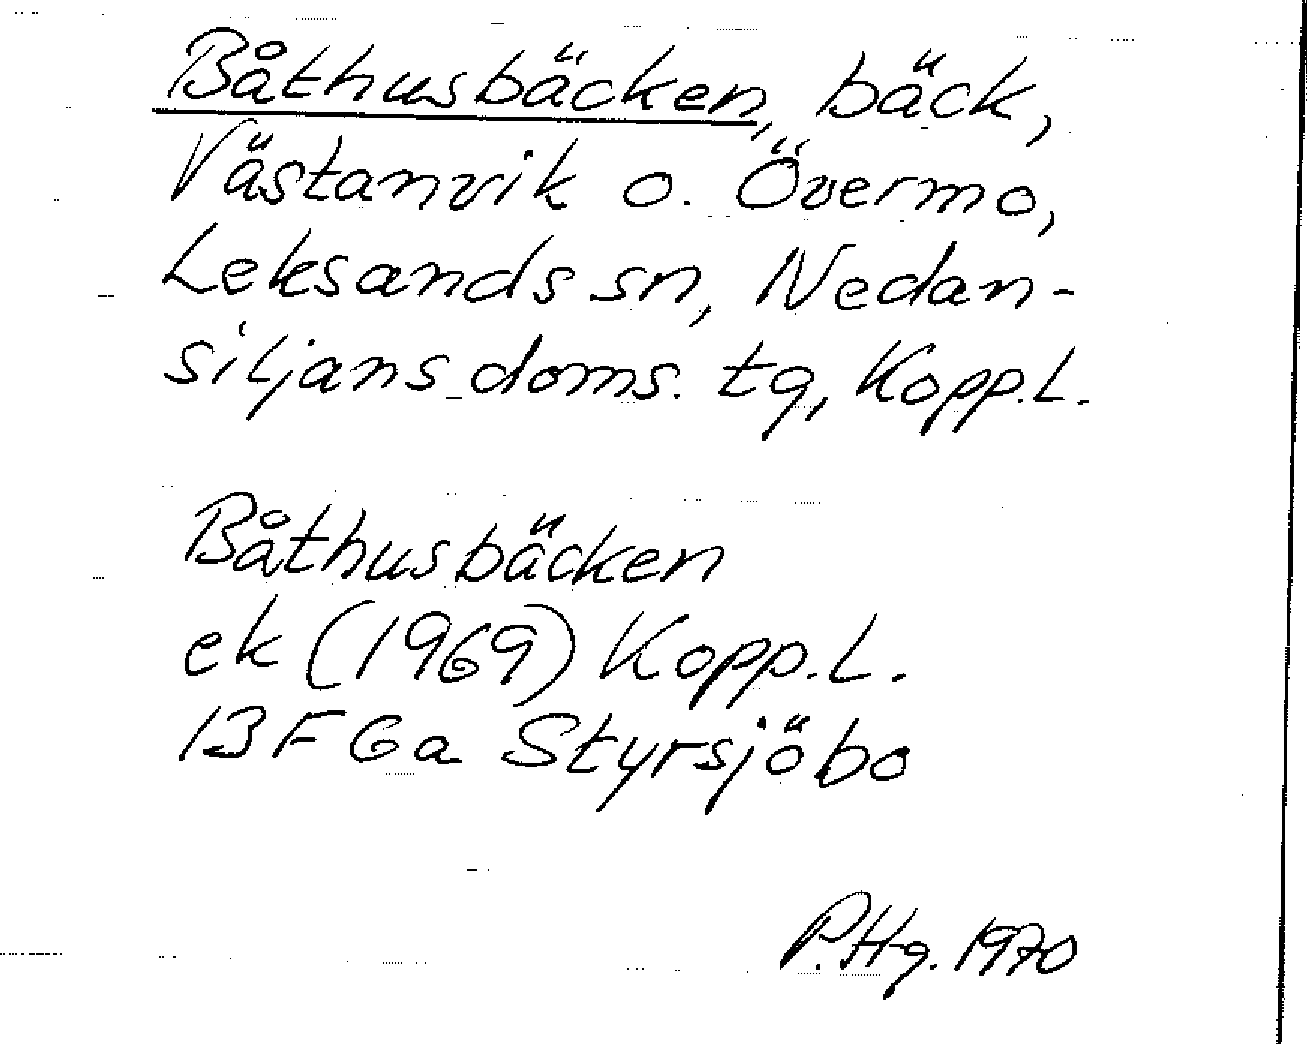 Båthusbäcken, bäck,
Västanvik o. Övermo,
Leksands sn, Nedan-
siljans doms. tg, Kopp.L.
Båthusbäcken
ek (1969) Kopp.L.
13F6a Styrsjöbo
P.Hg. 1970